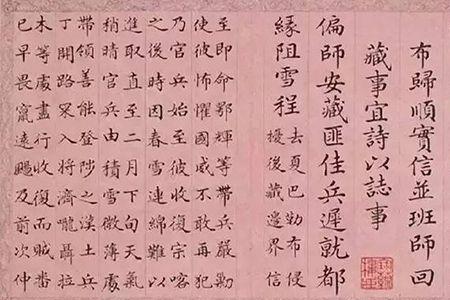 布歸順實信並班師回
藏事宜詩以誌事
偏師安藏匪佳兵遲就都
緣阻雪程去夏巴勒布侵
擾後藏邊界信
至即命鄂輝等帶兵嚴勦
使彼怖懼國威不敢再犯
乃官兵始至彼收復宗喀
之後時因春雪連綿難以
進取直至二月下旬天氣
稍晴官兵由積雪微薄處
帶領善能登陟之漢土兵
丁開路冞入將濟嚨聶拉
木等處盡行收復而賊番
已早畏竄遠颺及前次仲